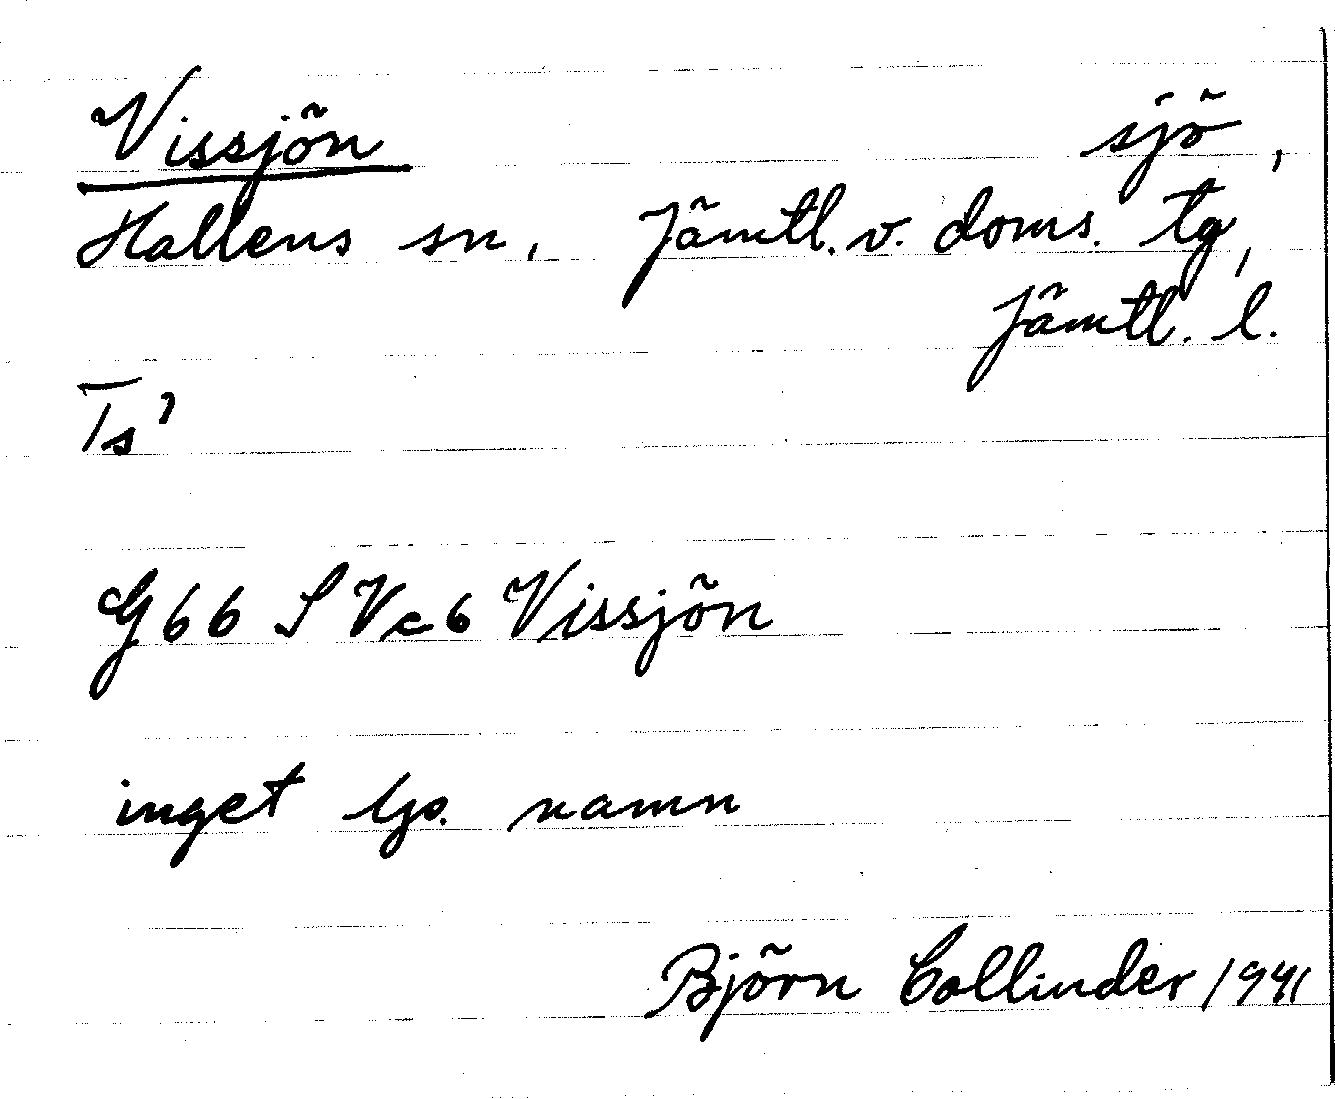 Vissjön sjö,
Hallens sn, Jämtl. v. doms. tg,
Jämtl. l.
Ts'
G66 S Vc6 Vissjön
inget lp. namn
Björn Collinder 1941